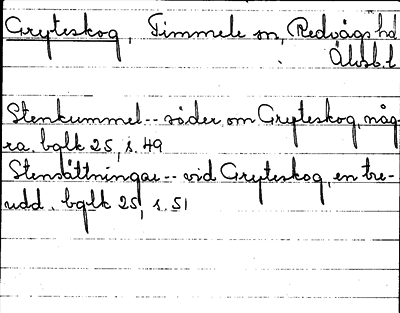 Gryteskog, Timmele sn, Redvägs hd
Älvsb. l
Stenkummel -- söder om Gryteskog, någ-
ra. bglk 25, s. 49
Stensättningar -- vid Gryteskog, en tre-
udd. bglk 25, s. 51